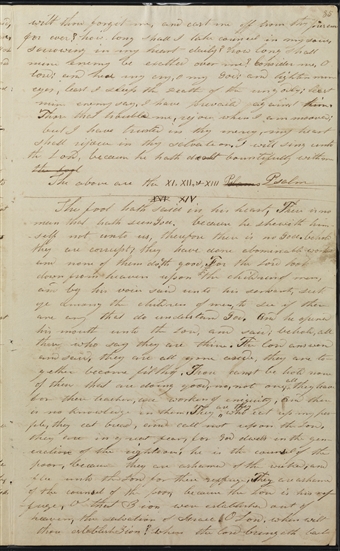 wilt thou forget me, and cast me off from thy presence
for ever? how long shall I take council in my soul,
sorrowing in my heart daily? how long shall
mine enemy be exalted over me? Consider me, O
Lord; and hear my cry, O my God; and lighten mine
eyes, lest I sleep the death of the ungodly; lest
mine enemy say, I have prevailed against him.
Those that trouble me, rejoice when I am moved;
but I have trusted in thy mercy, my heart
shall rejoice in thy salvation. I will sing unto
the Lord, because he hath dealt bountifully with me
The above are the XI, XII, & XIII Psalms
XIV
The fool hath said in his heart, There is no
man that hath seen God, because he sheweth him
self not unto us, therefore there is no God. Behold
they are corrupt; they have done abominable works
and none of them doth good. For the Lord look
down from heaven upon the children of men,
and by his voice said unto his servant, seek
ye among the children of men, to see if there
are any that do understand God. And he opened
his mouth unto the Lord, and said, behold, all
these who say they are thine. The Lord answered
and said, they are all gone aside, they are to
gether become filthy. Thou canst behold none
of them that are doing good, no, not one, they have
for their teachers, are workers of iniquity, and there
is no knowledge in them. They are they who eat up my peo
ple, they eat bread, and call not upon the Lord,
they are in great fear, for God dwells in the gen
eration of the righteous; he is the counsel of the
poor, because they are ashamed of the wicked, and
flee unto the Lord for their refuge. They are ashamed
of the counsel of the poor, because the Lord is his re
fuge, O that Zion was established out of
heaven, the salvation of Israel. O Lord, when wilt
thou establish Zion? when the Lord bringeth back